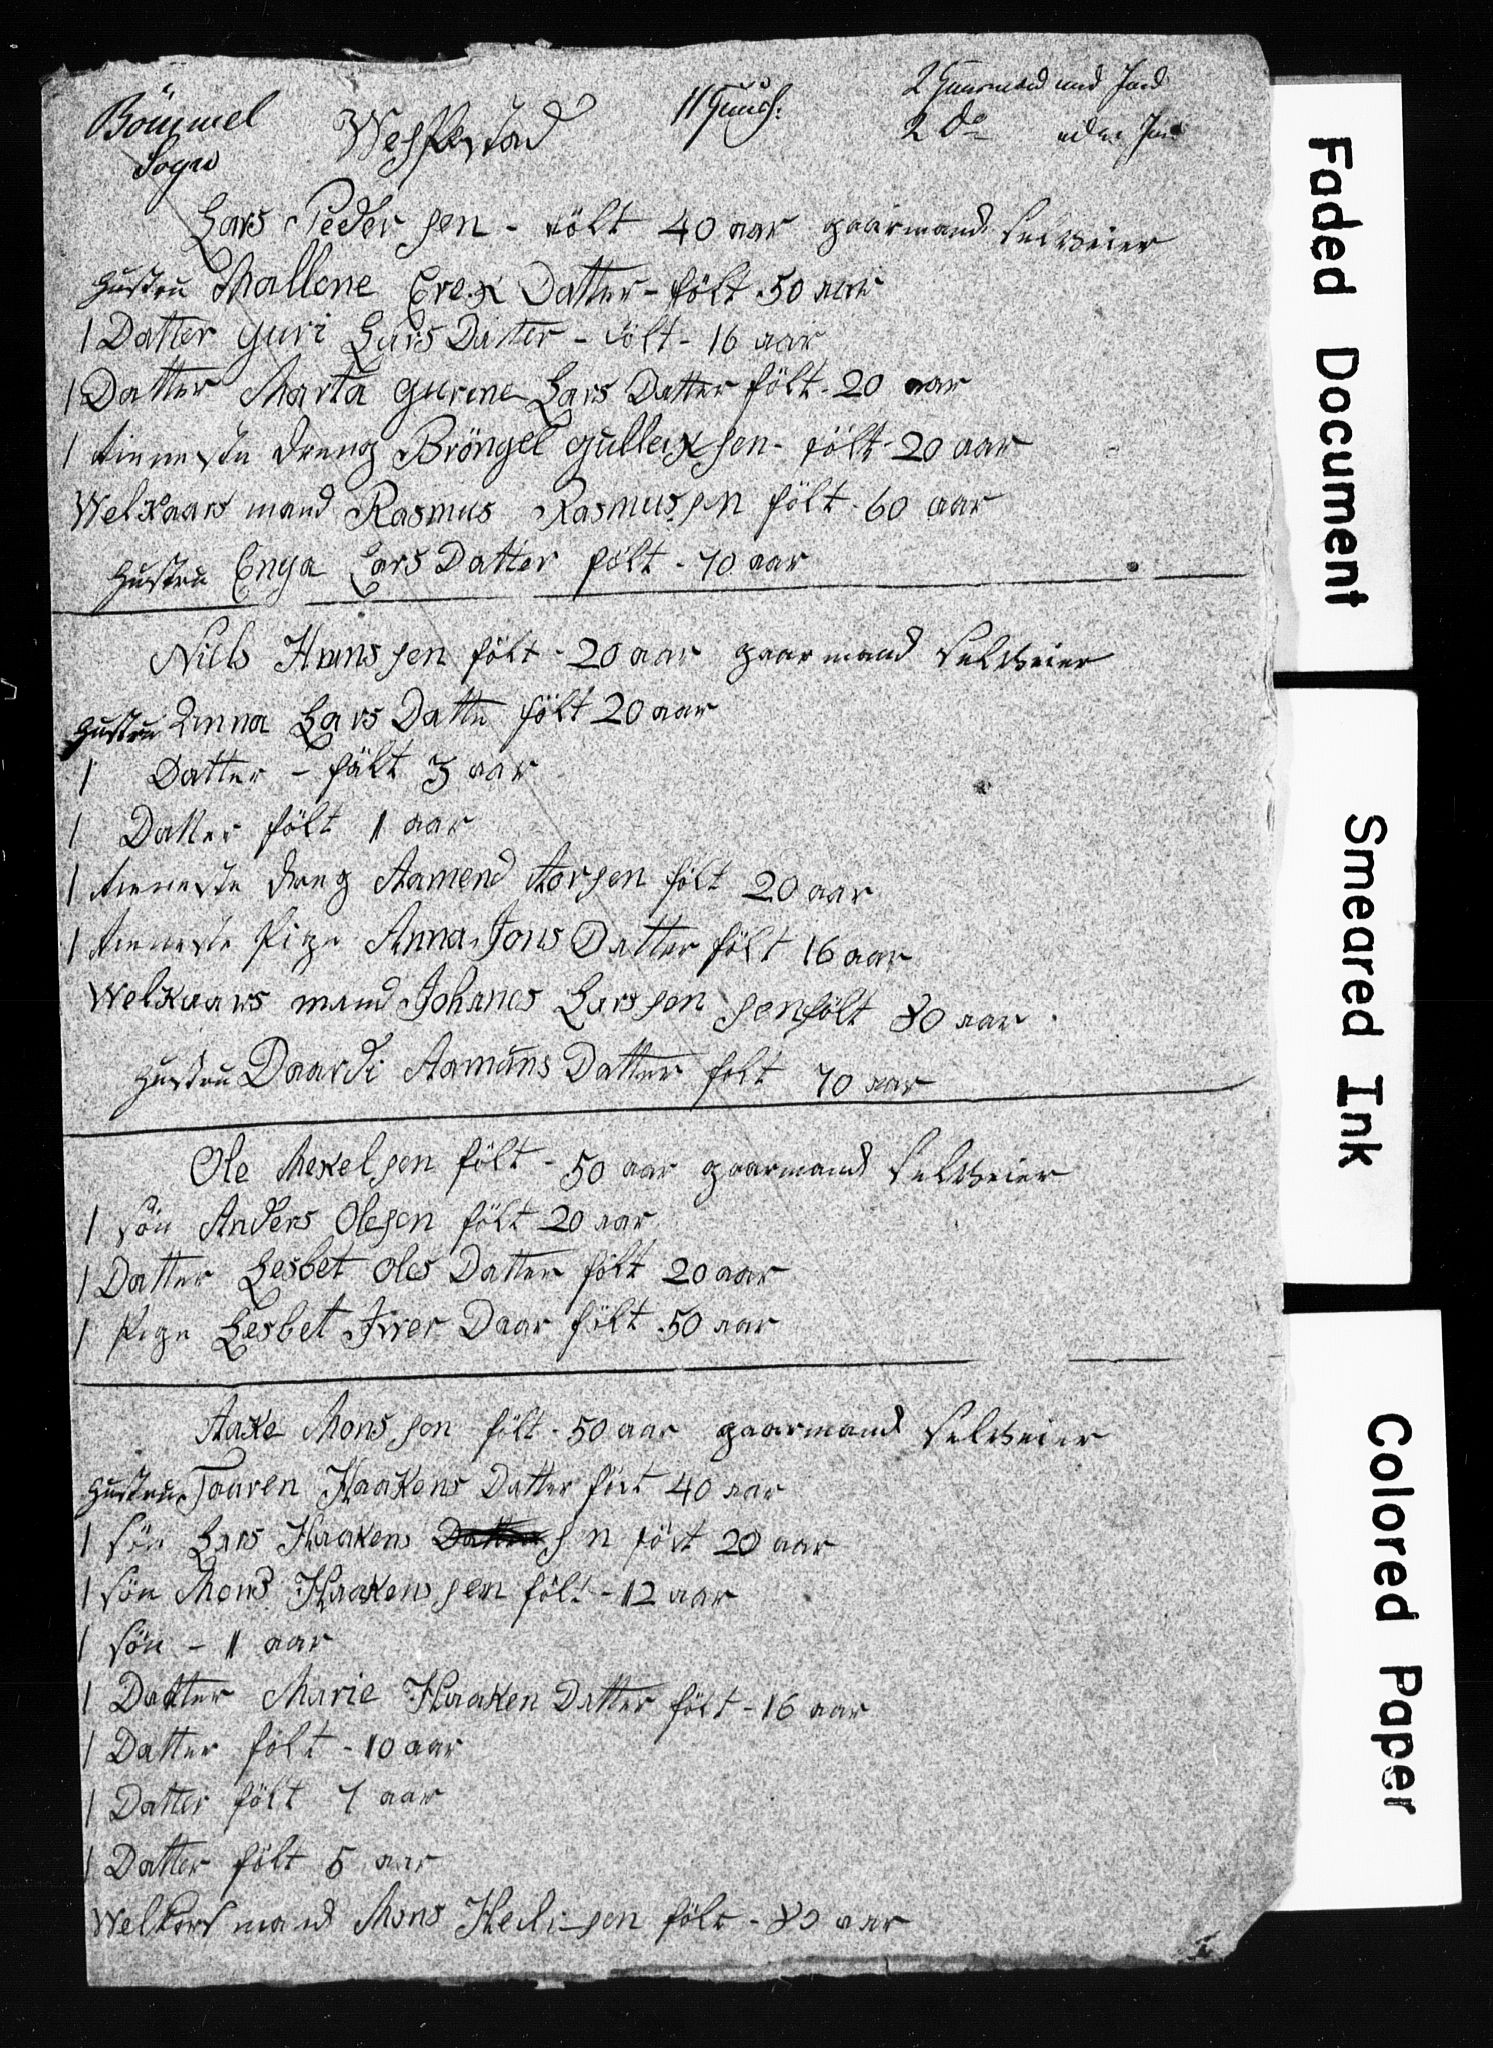 Bömmel Sogn
Wessflestad
2 Gaarmænd med Jord
2 do uden Jord
Lars Peder sen - fölt 40 aar gaarmand Selveier
Hustru Mallene Erex Datter - fölt 50 aar
1 Datter guri Lars Datter - fölt - 16 aar
1 Datter Marta gurine Lars Datter fölt - 20 aar
1 tieneste dreng Bröngel gulleix sen - fölt - 20 aar
Welkaars mand Rasmus Rasmus sen fölt - 60 aar
Hustru Enga Lars Datter fölt - 70 aar
Nills Hans sen fölt - 20 aar gaarmand Selveier
Hustru Anna Lars Datte fölt 20 aar
1 Datter - fält 3 aar
1 Datter fölt 1 aar
1 tieneste dreng Aamend Aorsen fölt 20 aar
1 tieneste Pige Anna Jons Datter fölt 16 aar
Welkaars mand Johanes Lars sen sen fölt 80 aar
Hustru Daardi Aamuns Datter folt 70 aar
Ole Mekel sen fölt - 50 aar gaarmand Selveier
1 sön Anders Olesen fölt 20 aar
1 Datter Lesbet Oles Datter fölt 20 aar
1 Pige Lesbet Iver Daar fölt 50 aar
Aake Mons sen fölt - 50 aar gaarmand Selveier
Hustru Taaren Haakens Datter föt 40 aar
1 sön Lars Haakens Datter sn fövt 20 aar
1 sön Mons Haaken sen fölt - 12 aar
1 sön - 11 aar
1 Datter Marie Haaken Datter fölt - 16 aar
1 Datter fölt - 10 aar
1 Datter fölt 7 aar
1 Datter fölt 5 aar
Welkors mand Mons sen fölt - 80 aar
Faded Document
Smeared Ink
Colored Paper